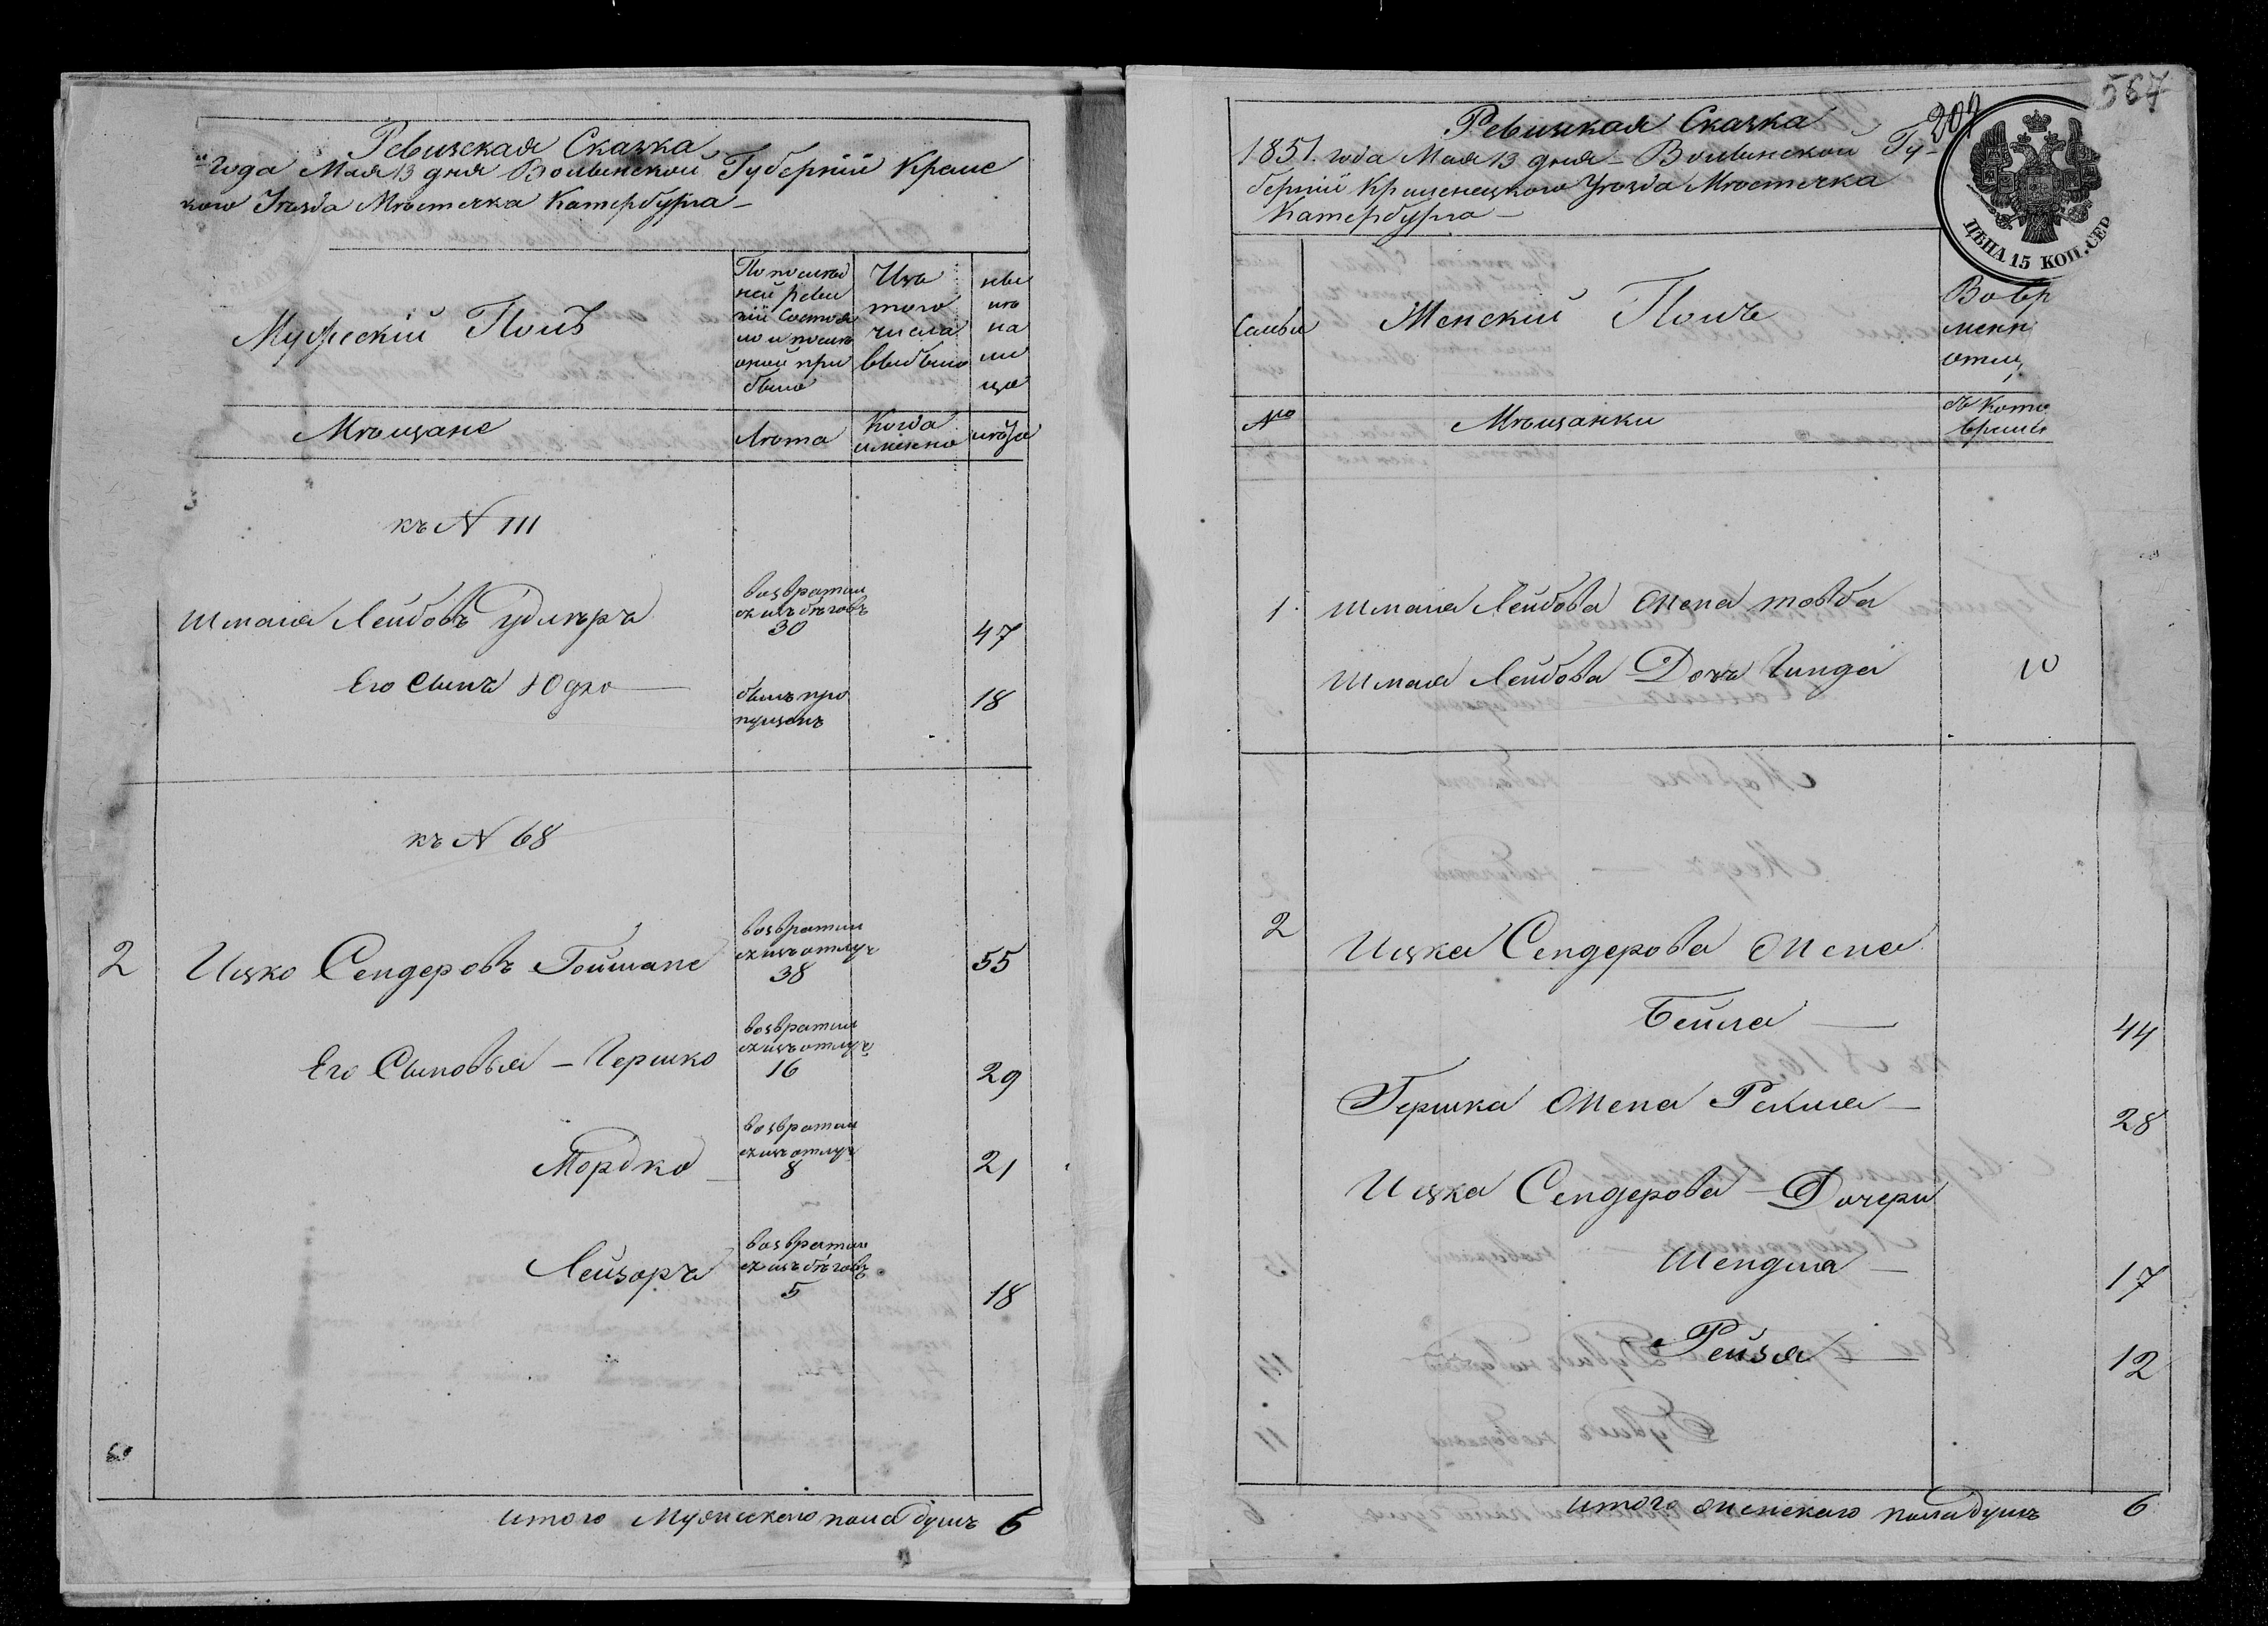 Ревизская Сказка
года Мая 13 дня Волынской Губерніи Креме
кого Уезда Мѣстечка Катербурга
Мужескій Полъ
По послѣд
ней реви
зіи состоя
ло и послѣ
оной при
было
Изъ
того
числа
выбыло
ны
нѣ
на
ли
цо
Мѣщане
Лѣта
Когда
именно
лѣта
къ N 111
Шмая Лейбовъ Удлеръ
возврати
ся изъ бѣговъ
30
47
Его Сынъ Юдко
былъ про
пущенъ
18
къ N 68
2 Ицко Сендеровъ Гойшане
возврати
ся изъ отлуч
38
55
Его Сыновья - Гершко
возврати
ся изъ отлуч
16
29
Мордко
возврати
ся изъ отлуч
8
21
Лейзоръ
возврати
ся изъ бѣговъ
5
18
итого Мужескаго пола душъ 6
567
202
Ревизкая Сказка
1851. года Мая 13 дня - Волынской Гу-
берніи Кременецкого Уѣзда Мѣстечка
Катербурга
ЦѢНА 15 КОП. СЕР
Семьи
Женскій Полъ
Во вр
менн
отлу
№
Мѣщанки
съ кото
времен
1. Шмаия Лейбова Жена товба
Шмаия Лейбова Дочь Гинда 10
2 Ицка Сендерова Жена
Бейла 44
Гершка Жена Рахиля 28
Ицка Сендерова Дочери
Шендля 17
Рейзя 12
итого женскаго пола душъ 6